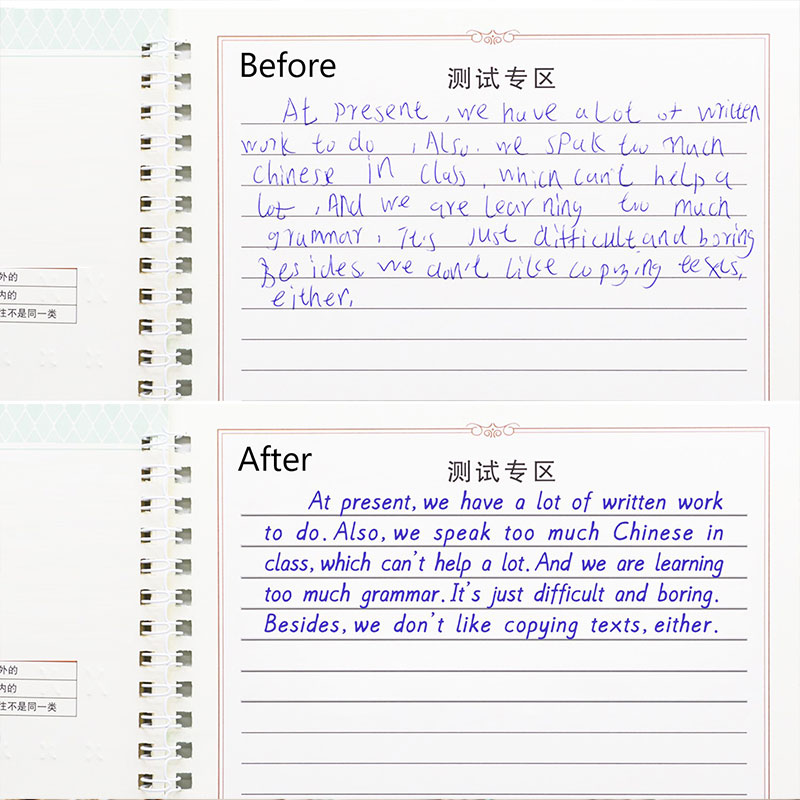 Before
测试专区
At present, we have a lot of written
work to do , Also. we spak too much
chinese in class, which can't help a
lot , And we are learning too much
grammar. It's just difficult and boring
Besides we don't like copying texts,
either.
外的
内的
主不是同一类
After
测试专区
At present, we have a lot of written work
to do. Also, we speak too much Chinese in
class, which can't help a lot. And we are learning
too much grammar. It's just difficult and boring.
Besides, we don't like copying texts, either.
外的
内的
主不是同一类